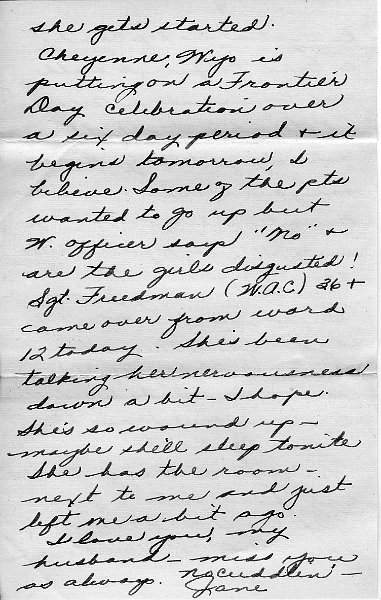 she gets started.
Cheyenne, Wyo is
putting on a Frontier
Day celebration over
a six day period + it
begins tomorrow, I
believe. Some of the pts
wanted to go up but
W. officer says "No" +
are the girls disgusted!
Sgt. Freedman (W.A.C) 36 +
came over from ward
12 today. She's been
talking her nervousness
down a bit - I hope.
She's so wound up -
maybe she'll sleep tonite
She has the room -
next to me and just
left me a bit ago.
I love you, my
husband - miss you
as always. No cuddlin' -
Jane